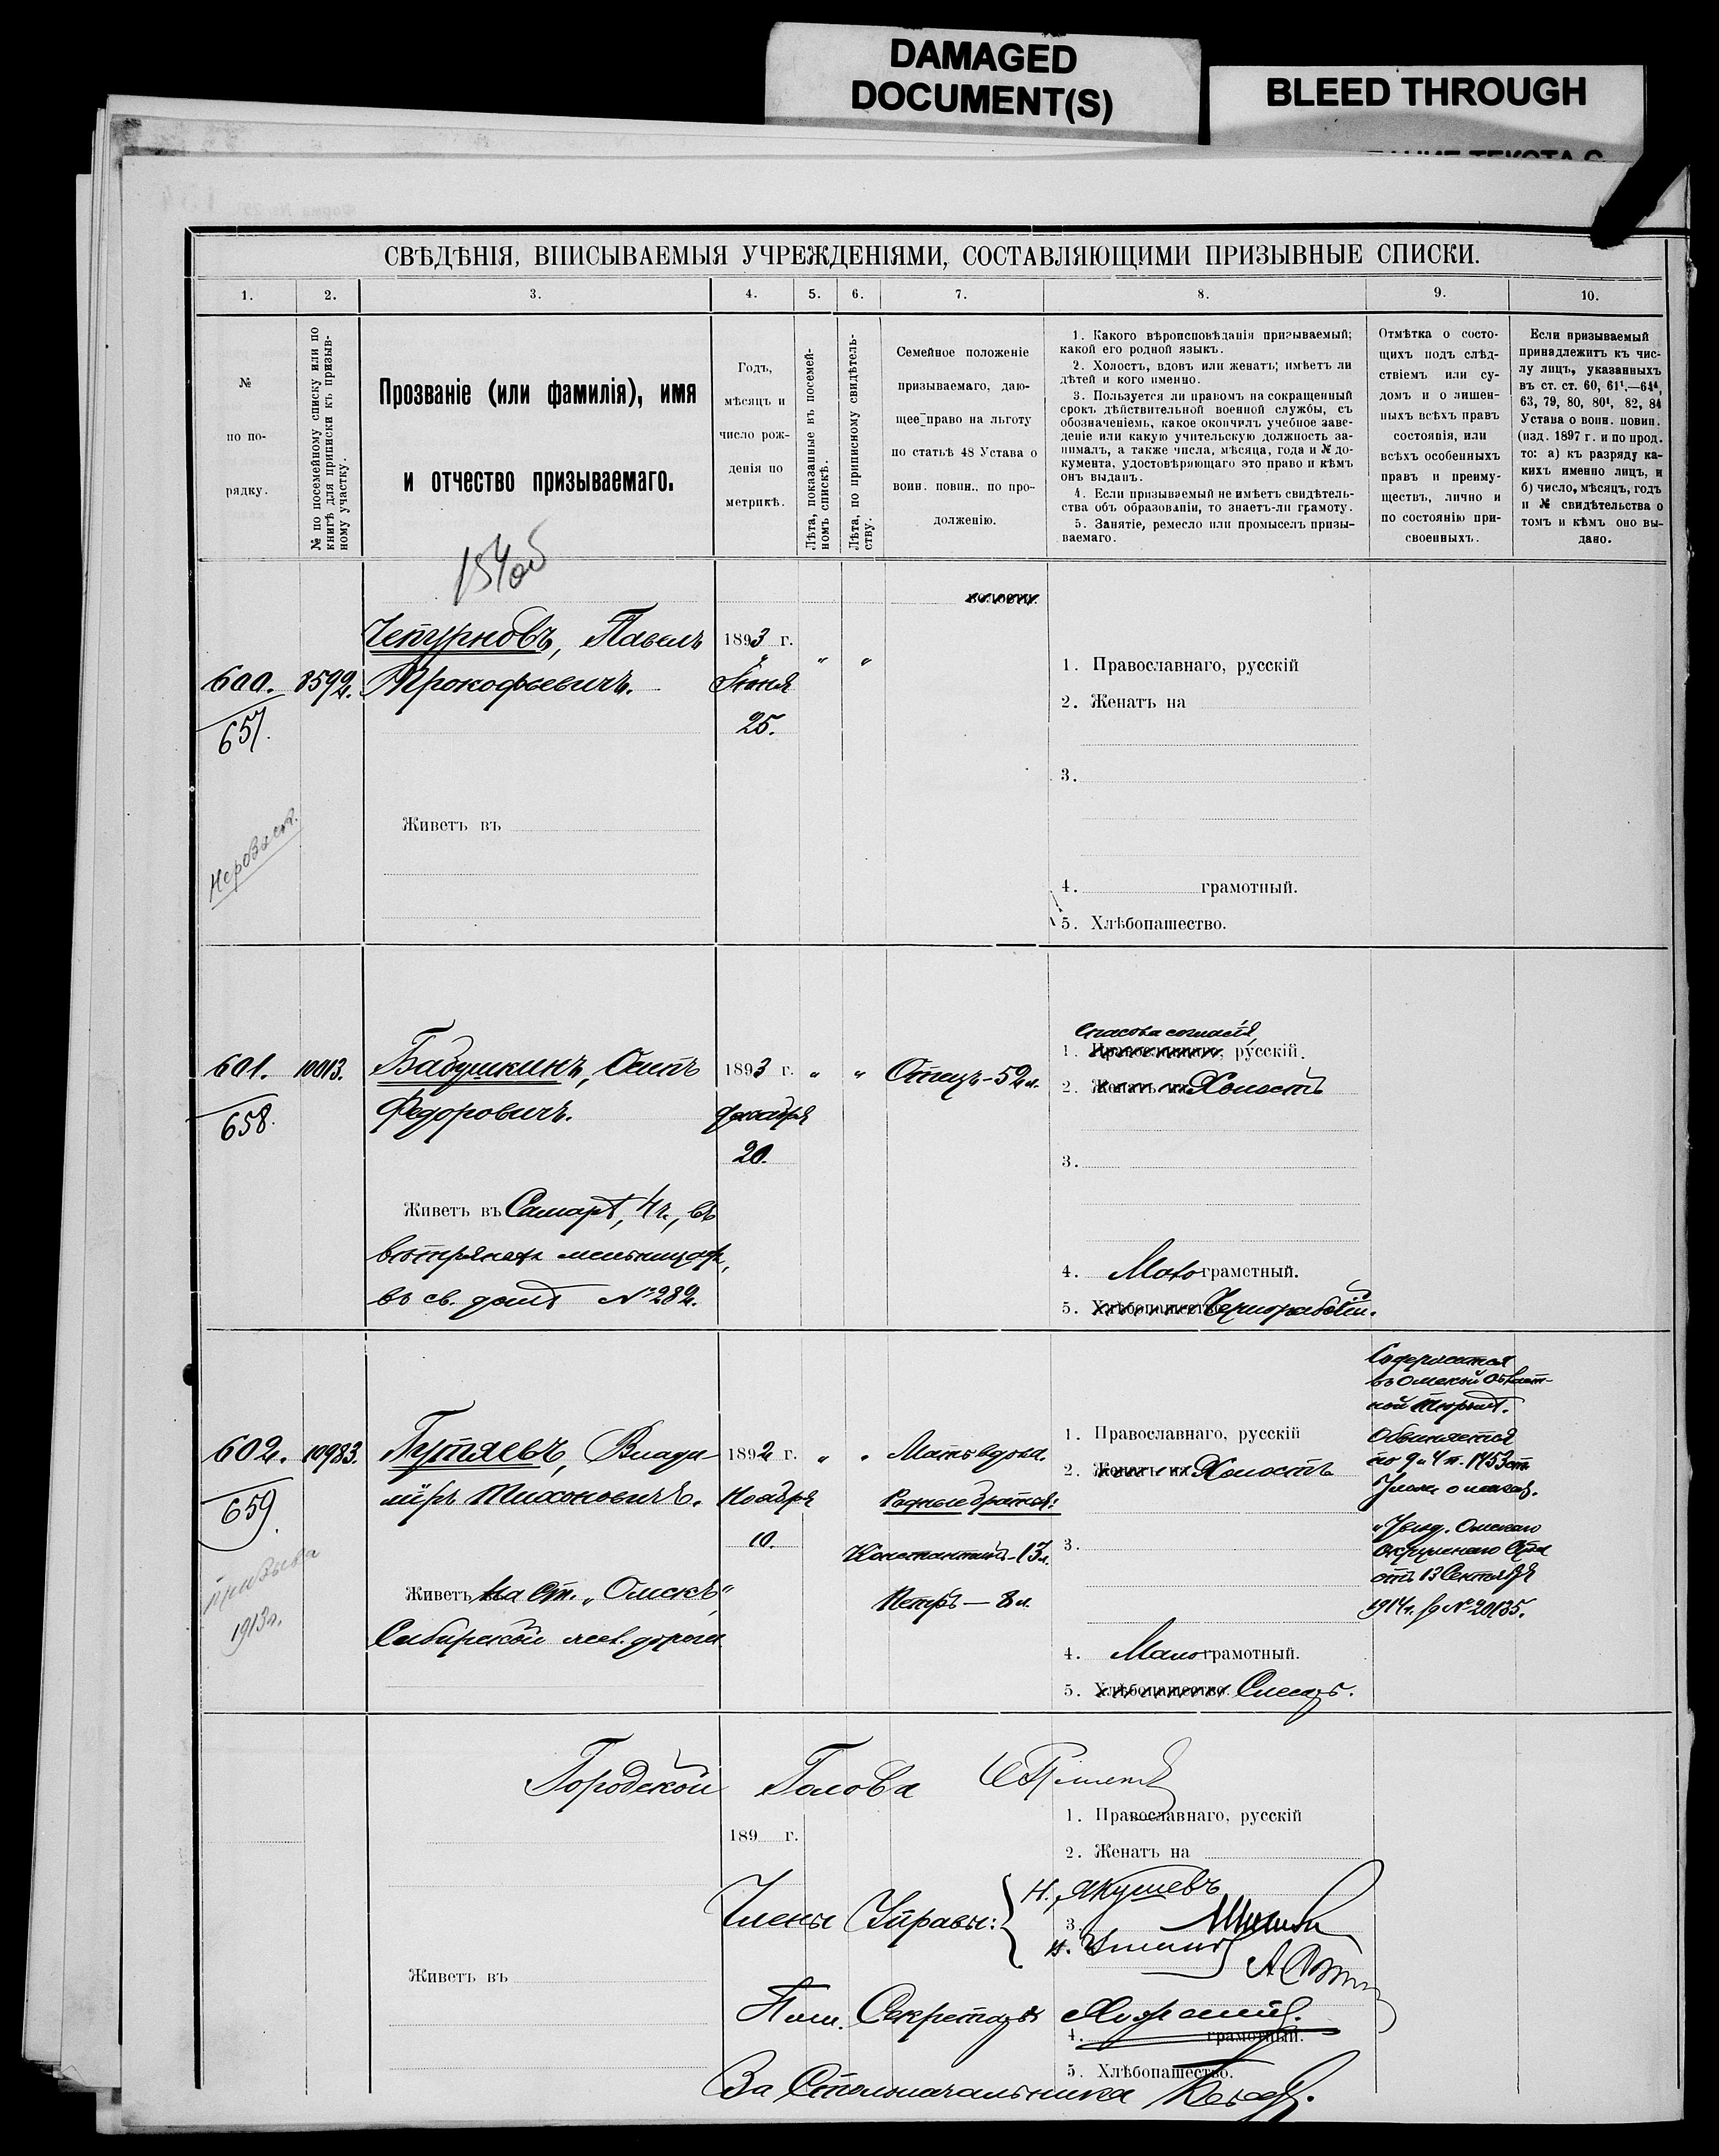 DAMAGED
DOCUMENT(S)
BLEED THROUGH
СВѢДѢНІЯ, ВПИСЫВАЕМЫЯ УЧРЕЖДЕНІЯМИ, СОСТАВЛЯЮЩИМИ ПРИЗЫВНЫЕ СПИСКИ.
1.
2.
3.
4.
5.
6.
7.
8.
9.
10.
№
по по-
рядку.
№ по посемейному списку или по
книгѣ для приписки къ призыв-
ному участку.
Прозваніе (или фамилія), имя
и отчество призываемаго.
Годъ,
мѣсяцъ и
число рож-
денія по
метрикѣ.
Лѣта, показанные въ посемей-
номъ спискѣ.
Лѣта, по приписному свидѣтель-
ству.
Семейное положеніе
призываемаго, даю-
щее право на льготу
по статьѣ 48 Устава о
воин. повин., по про-
долженію.
1. Какого вѣроисповѣданія призываемый;
какой его родной языкъ.
2. Холостъ, вдовъ или женатъ; имѣетъ ли
дѣтей и кого именно.
3. Пользуется ли правомъ на сокращенный
срокъ дѣйствительной военной службы, съ
обозначеніемъ, какое окончилъ учебное заве-
деніе или какую учительскую должность за-
нималъ, а также числа, мѣсяца, года и № до-
кумента, удостовѣряющаго это право и кѣмъ
онъ выданъ.
4. Если призываемый не имѣетъ свидѣтель-
ства объ образованіи, то знаетъ-ли грамоту.
5. Занятіе, ремесло или промыселъ призы-
ваемаго.
Отмѣтка о состо-
щихъ подъ слѣд-
ствіемъ или су-
домъ и о лишен-
ныхъ всѣхъ правъ
состоянія, или
всѣхъ особенныхъ
правъ и преиму-
ществъ, лично и
по состоянію при-
своенныхъ.
Если призываемый
принадлежитъ къ чис-
лу лицъ, указанныхъ
въ ст. ст. 60, 61¹.—64⁴,
63, 79, 80, 80¹, 82, 84
Устава о воин. повин.
(изд. 1897 г. и по прод.
то: а) къ разряду ка-
кихъ именно лицъ, и
б) число, мѣсяцъ, годъ
и № свидѣтельства о
томъ и кѣмъ оно вы-
дано.
154об
600.
657.
8592.
Чепурновъ, Павелъ
Прокофьевичъ.
1893 г.
Іюня
25.
" " "
Живетъ въ
1. Православнаго, русскій
2. Женатъ на
3.
4. грамотный.
5. Хлѣбопашество.
601.
658.
10013.
Бабушкинъ, Осипъ
Федоровичъ.
1893 г.
декабря
20.
" "
Отецъ-52 л.
Живетъ въ Самарѣ, 4 ч., въ
вѣтряныхъ мельницахъ,
въ св. домѣ № 282.
Спасова согласія,
1. Православнаго, русскій.
2. Женатъ на Холостъ
3.
4. Малограмотный.
5. Хлѣбопашество. Чернорабочій.
602.
659.
10983.
призыва
1913 г.
Путяевъ, Влади-
міръ Тихоновичъ.
1892 г.
Ноября
10.
" "
Мать вдова.
Родные братья:
Константинъ-13 л.
Петръ — 8 л.
Живетъ на ст. „Омскъ"
Сибирской жел. дороги
1. Православнаго, русскій
2. Женатъ на Холостъ
3.
4. Малограмотный.
5. Хлѣбопашество. Слесарь.
Содержится
въ Омской област-
ной тюрьмѣ.
Обвиняется
по 9 и 4 п. 1453 ст.
Улож. о наказ.
Увѣд. Омскаго
окружнаго Суда
отъ 13 Сентября
1914 г. за № 20135.
Городской Голова
189 г.
1. Православнаго, русскій
2. Женатъ на
Члены Управы:
Н. Якушевъ
3.
Живетъ въ
Пом. Секретаря
4. грамотный.
5. Хлѣбопашество.
За Столоначальника